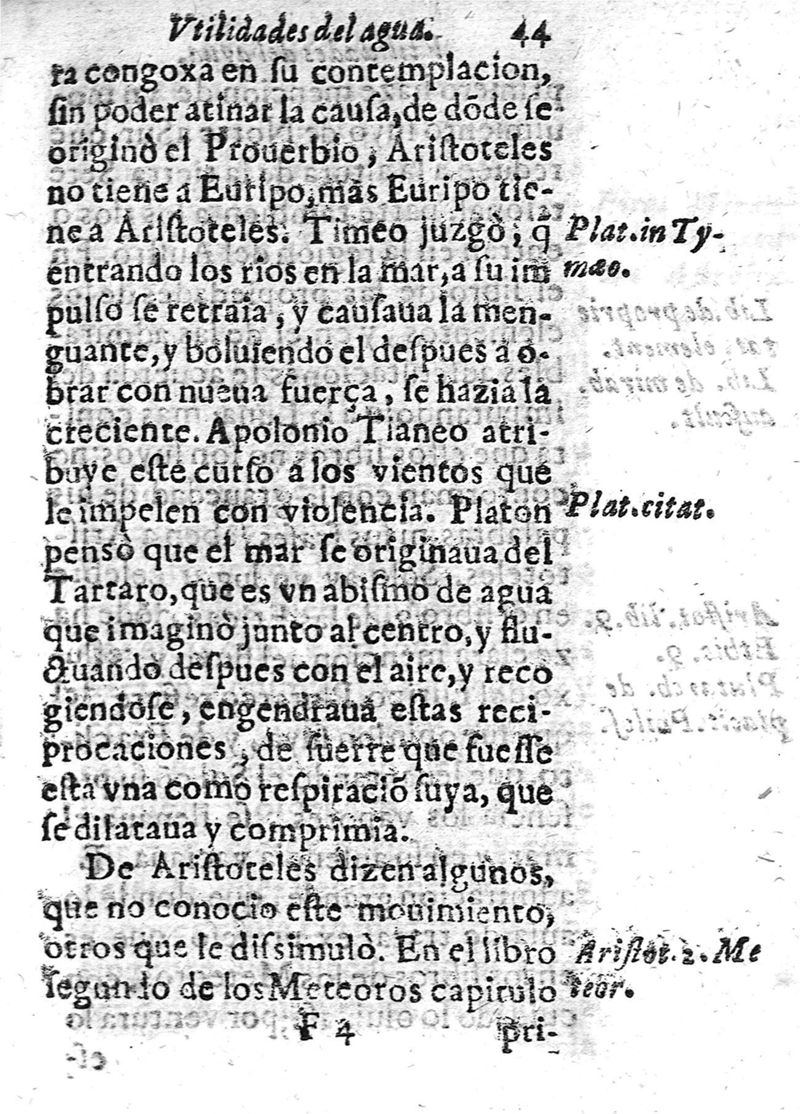 Vtilidades del agua. 44
ra congoxa en ſu contemplacion,
ſin poder atinar la cauſa, de dõde ſe
originò el Prouerbio, Ariſtoteles
no tiene a Euripo, mas Euripo tie-
ne a Ariſtoteles. Timeo juzgò, q̃
Plat. in Ty-
entrando los rios en la mar, a ſu im
mæo.
pulſo ſe retraia, y cauſaua la men-
guante, y boluiendo el deſpues a o-
brar con nueua fuerça, ſe hazia la
creciente. Apolonio Tianeo atri-
buye eſte curſo a los vientos que
le impelen con violencia. Platon
Plat. citat.
pensò que el mar ſe originaua del
Tartaro, que es vn abiſmo de agua
que imaginò junto al centro, y flu-
ctuando deſpues con el aire, y reco
giendoſe, engendraua eſtas reci-
procaciones, de ſuerre que fueſſe
eſta vna como reſpiraciõ ſuya, que
ſe dilataua y comprimia.
De Ariſtoteles dizen algunos,
que no conocio eſte mouimiento,
otros que le diſsimulò. En el libro
Ariſtot. 2. Me
ſegundo de los Meteoros capitulo
teor.
F 4 pri-